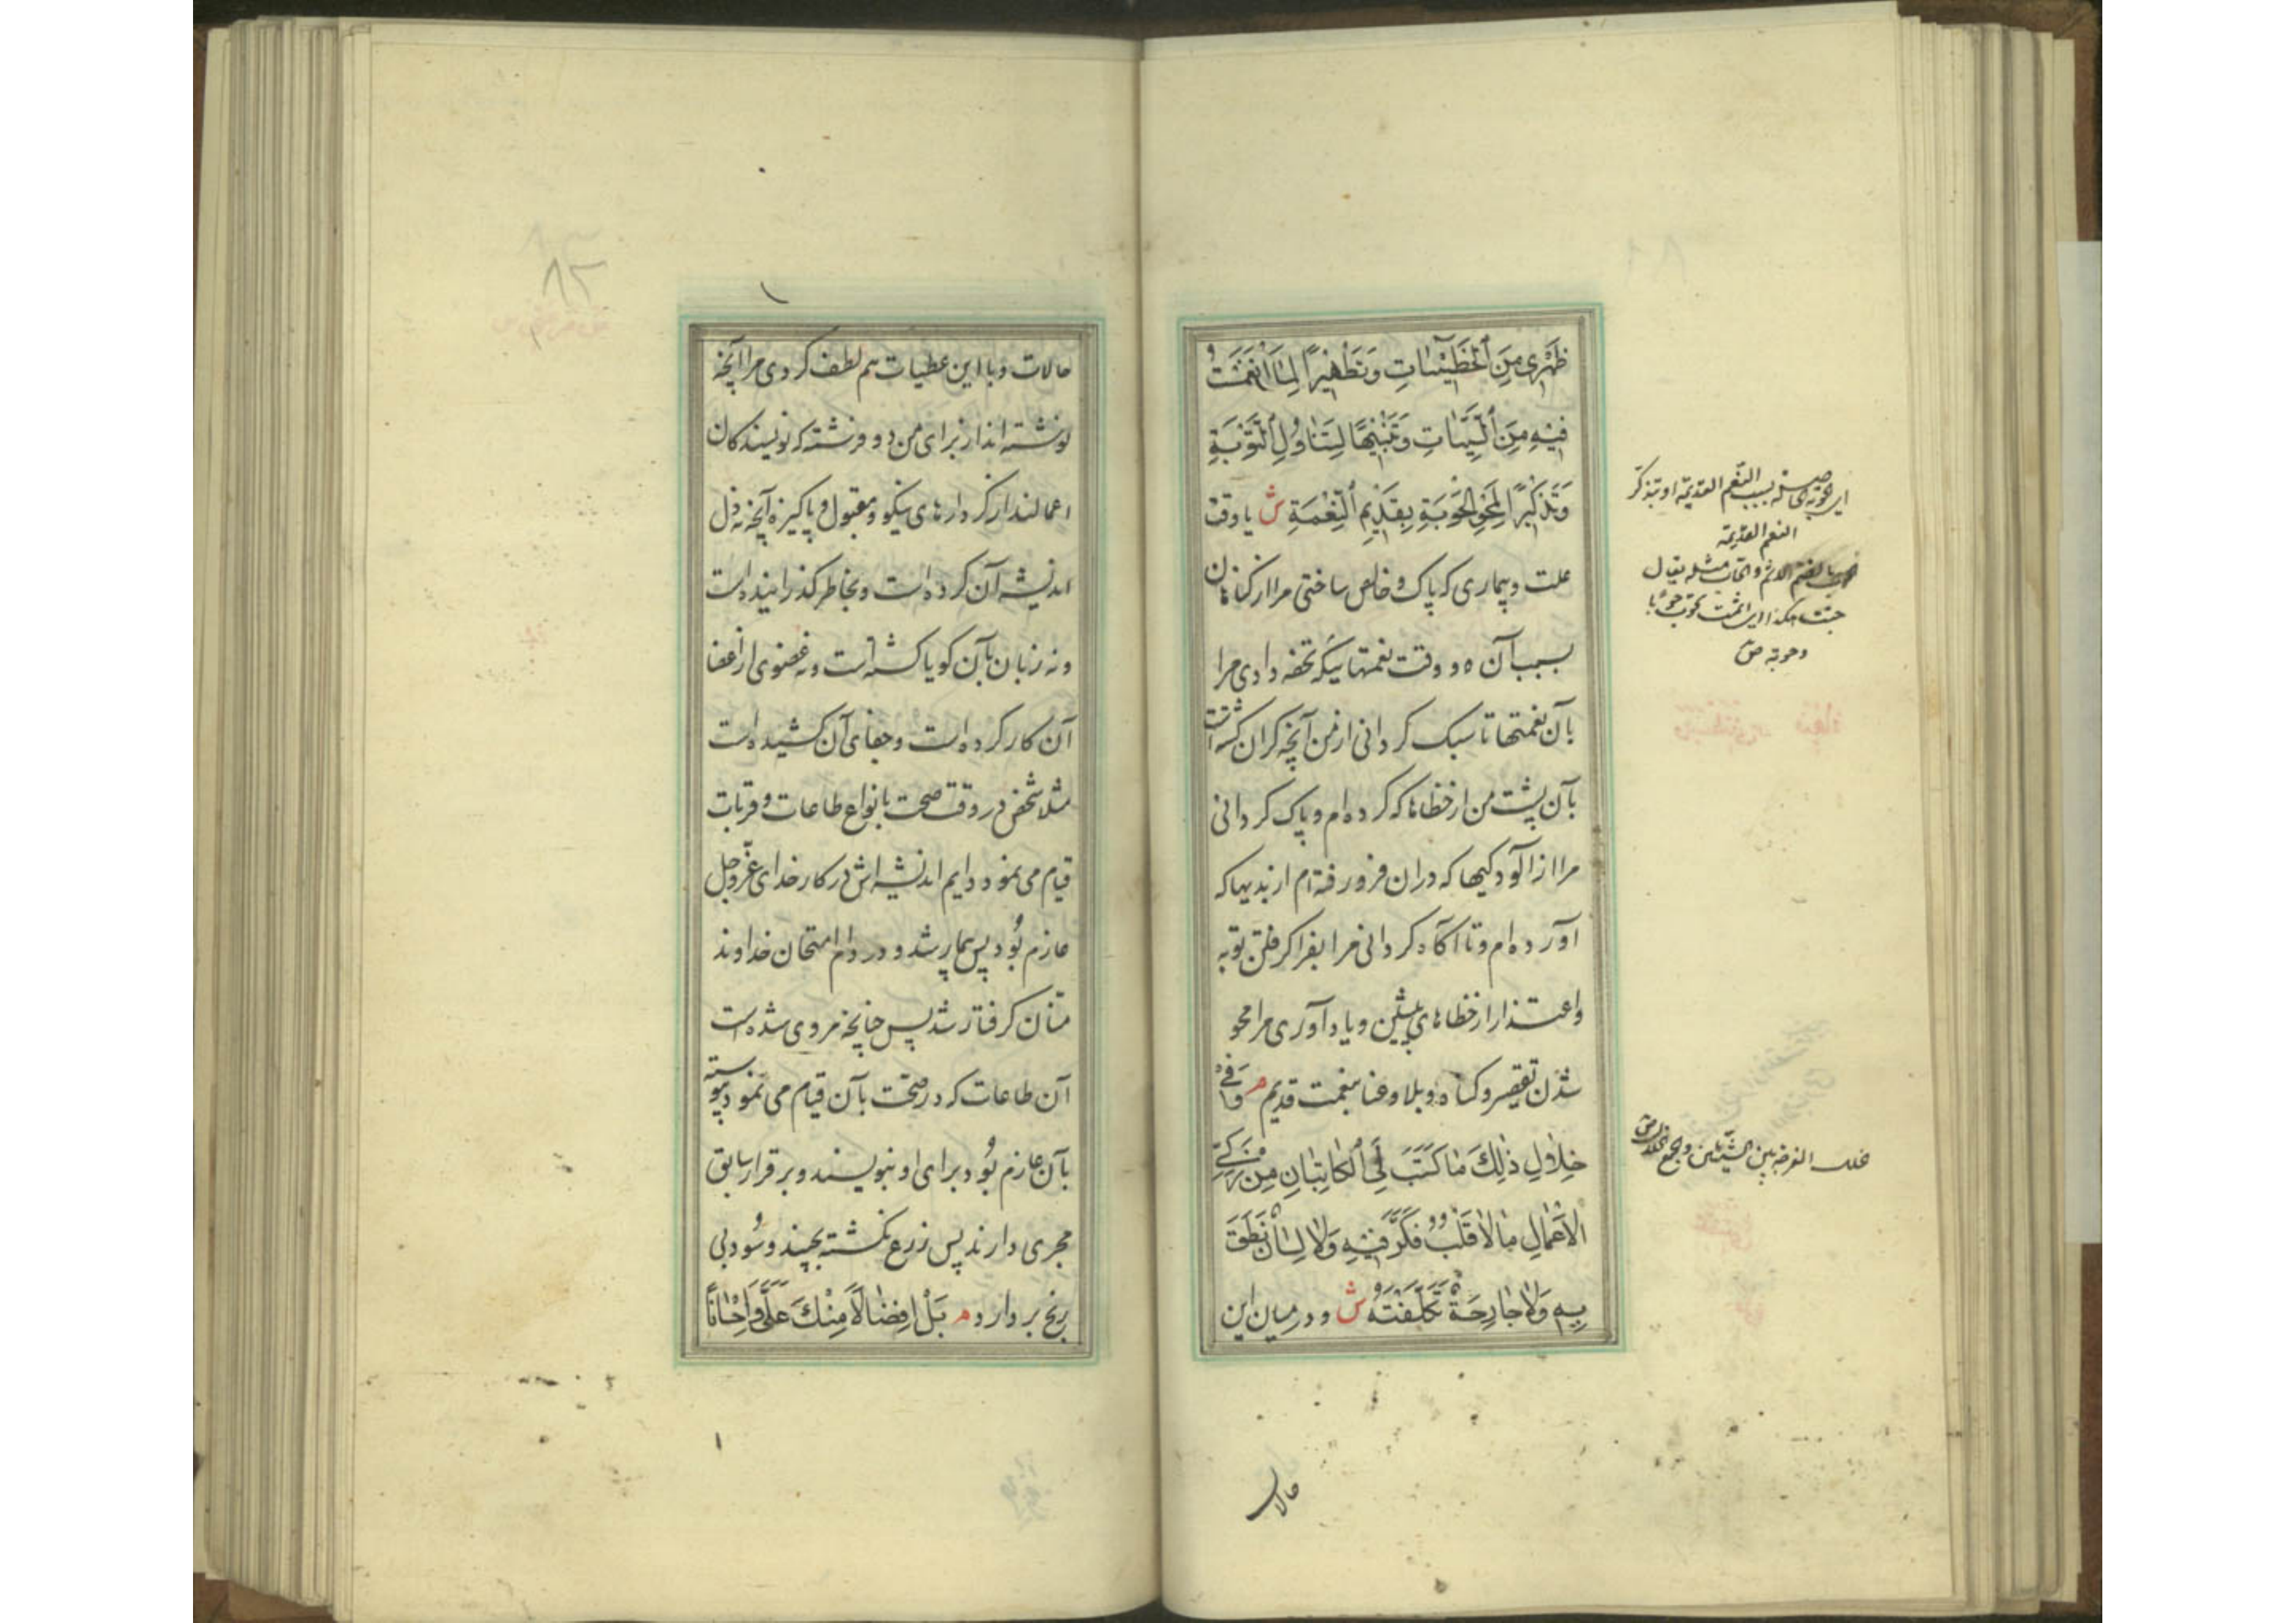 ظَهْرِی مِنَ ٱلْخَطِیئٰاتِ وَتَطْهِیرًا لِمَا ٱنْغَمَسْتُ
فِیهِ مِنَ ٱلسَّیِّئٰاتِ وَتَنْبِیهًا لِتَنٰاوُلِ ٱلتَّوْبَةِ
وَتَذْکِیرًا لِمَحْوِ الْحَوْبَةِ بِقَدِیمِ ٱلنِّعْمَةِ ش یا وقت
علت و بیماری که پاک و خالص ساختی مرا از گناهان
بسبب آن ه و وقت نعمتهائیکه تحفه دادی مرا
بآن نعمتها تا سبک گردانی از من آنچه گران گشته است
بآن پشت من از خطاها که کرده ام و پاک گردانی
مرا از آلودگیها که در ان فرو رفته ام از بدیها که
آورده ام و تا آگاه گردانی مرا بفرا گرفتن توبه
و اعتذار از خطاهای پیشین و یاد آوری مرا محو
شدن تقصیر و گناه و بلا و عنا بنعمت قدیم م وَفِی
خِلٰالِ ذٰلِكَ مٰا کَتَبَ لِیَ ٱلْکٰاتِبٰانِ مِنْ زَکِیِّ
الْاَعْمٰالِ مٰا لاٰ قَلْبٌ فَکَّرَ فِیهِ وَلاٰ لِسٰانٌ نَطَقَ
بِهِ وَلاٰ جٰارِحَةٌ تَکَلَّفَتْهُ ش و در میان این
النعم القدیمة
وحوبة ص
حالات
حالات و با این عطیات هم لطف کردی مرا آنچه
نوشته اند از برای من دو فرشته که نویسندگان
اعمالند از کردارهای نیکو و مقبول و پاکیزه آنچه نه دل
اندیشه آن کرده است و بخاطر گذرانیده است
و نه زبان بآن گویا گشته است و نه عضوی از اعضا
آن کار کرده است و جفای آن کشیده است
مثلا شخص در وقت صحت بانواع طاعات و قربات
قیام می نمود و دایم اندیشه اش در کار خدای عزّ و جل
عازم بُود پس بیمار شد و در دام امتحان خداوند
منّان گرفتار شد پس چنانچه مروی شده است
آن طاعات که در صحّت بآن قیام می نمود و پیوسته
بآن عازم بُود برای او بنویسند و بر قرار سابق
مجری دارند پس زرع نکشته بچیند و سُود بی
رنج بر دارد م بَلْ اِفْضٰالًا مِنْكَ عَلَیَّ وَاِحْسٰانًا
۸۳